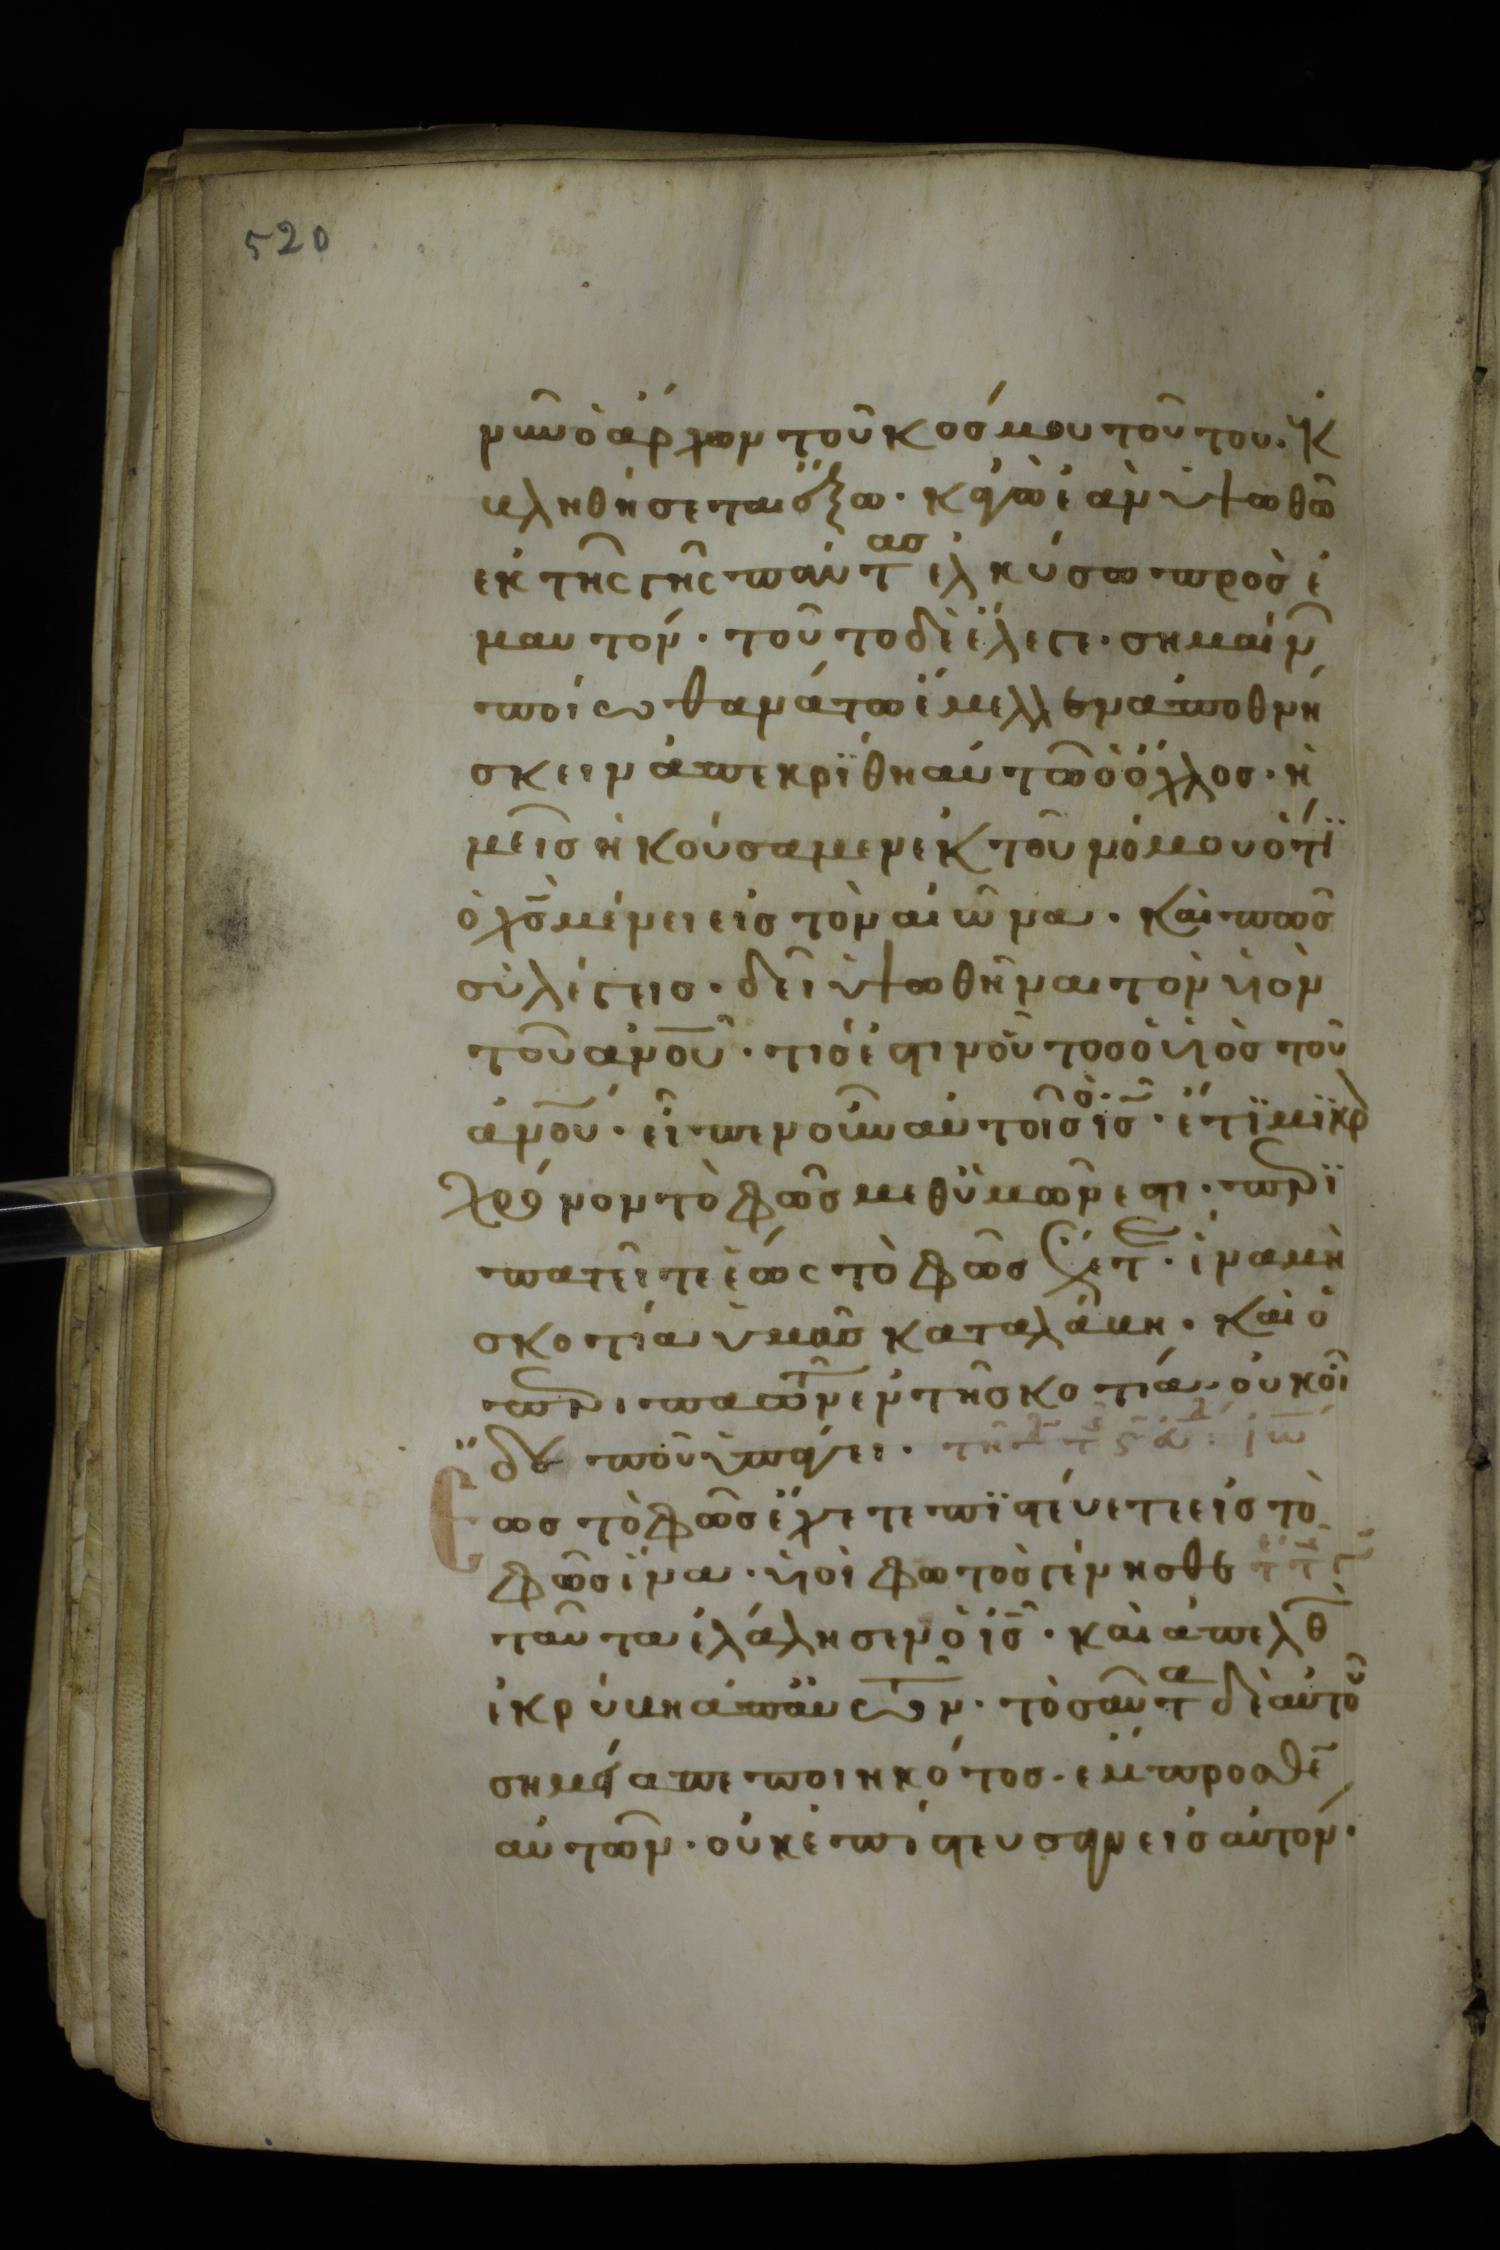 520
νῦν ὁ ἄρχων τοῦ κόσμου τούτου. ἐκ
βληθήσεται ἔξω. κἀγὼ ἐὰν ὑψωθῶ
ἐκ τῆς γῆς πάντας ἑλκύσω πρὸς ἐ
μαυτόν. τοῦτο δὲ ἔλεγε. σημαίν
ποίω θανάτω ἔμελλεν ἀποθνή
σκειν ἀπεκρίθη αὐτῶ ὁ ὄχλος. ἡ
μεῖς ἠκούσαμεν ἐκ τοῦ νόμου ὅτϊ
ὁ χς μένει εἰς τὸν αἰῶνα. καὶ πῶς
σὺ λέγεις. δεῖ ὑψωθῆναι τὸν υἱὸν
τοῦ ανου. τίς ἐστιν οὗτος ὁ υἱὸς τοῦ
ανου. εἶπεν οὖν αὐτοῖς ὁ ις. ἔτϊ μϊκρ
χρόνον τὸ φῶς μεθ ϋμῶν ἐστι. περϊ
πατεῖτε ἕως τὸ φῶς ἔχετε. ἵνα μὴ
σκοτία ὑμᾶς καταλάβη. καὶ ὁ
περιπατῶν ἐν τῆ σκοτία. οὐκ οἶ
δε ποῦ ὑπάγει.
Εως τὸ φῶς ἔχετε πϊστεύετε εἰς τὸ
φῶς ἵνα. υἱοὶ φωτὸς γένησθε
ταῦτα ἐλάλησεν ὁ ις. καὶ ἀπελθ
ἐκρύβη ἀπ αυτῶν. τοσαῦτα δὲ αὐτοῦ
σημεία πεποιηκότος. ἔμπροσθε
αὐτῶν. οὐκ ἐπίστευσαν εἰς αὐτόν.